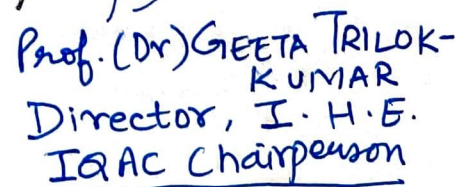 Prof. (Dr) GEETA TRILOK-
KUMAR
Director, I. H. E.
IQAC Chairperson